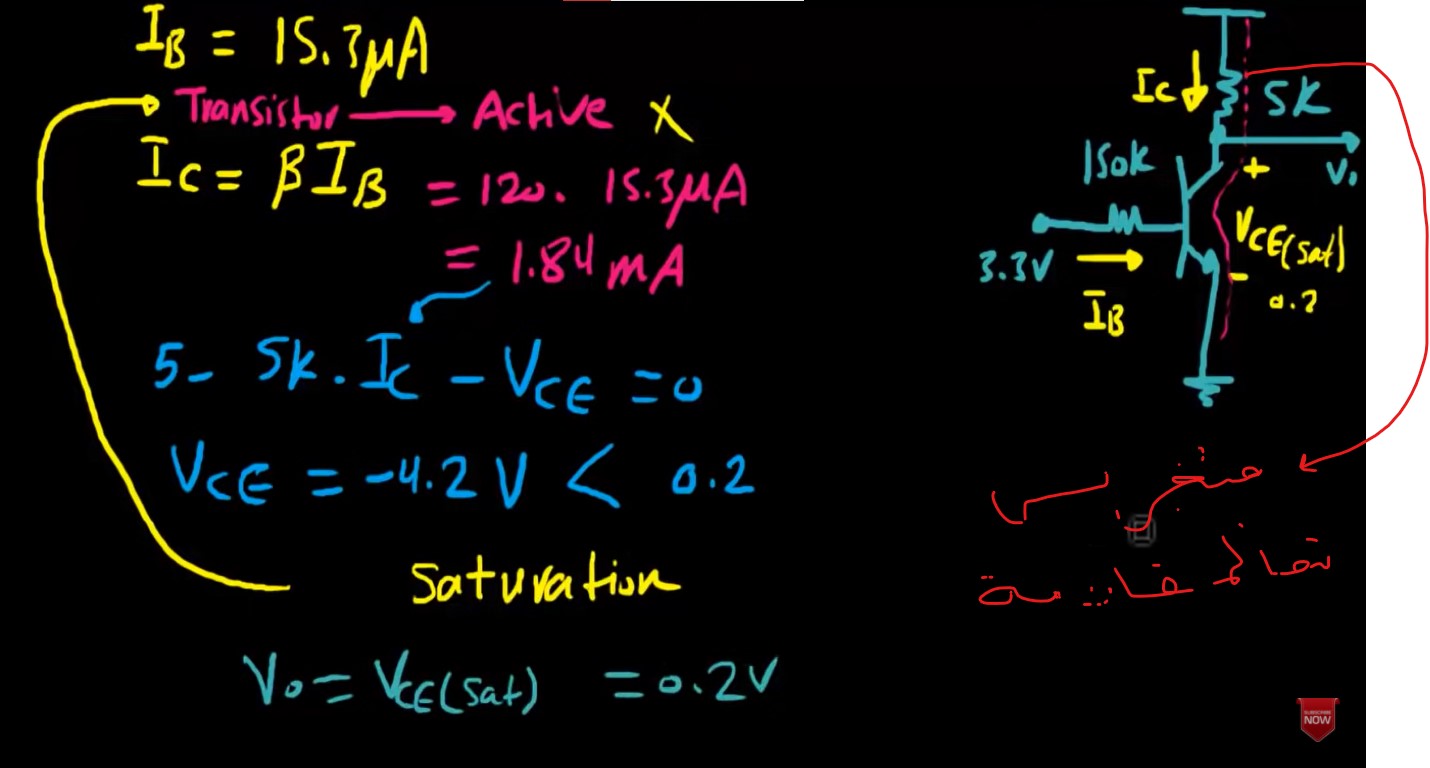 I_B = 15.3μA
Transistor → Active X
I_C = β I_B = 120 . 15.3μA
= 1.84 mA
5 - 5k . I_C - V_CE = 0
V_CE = -4.2 V < 0.2
Saturation
V_o = V_CE(sat) = 0.2V
I_C
5k
V_o
150k
+
V_CE(sat)
-
0.2
3.3V
I_B
SUBSCRIBE
NOW